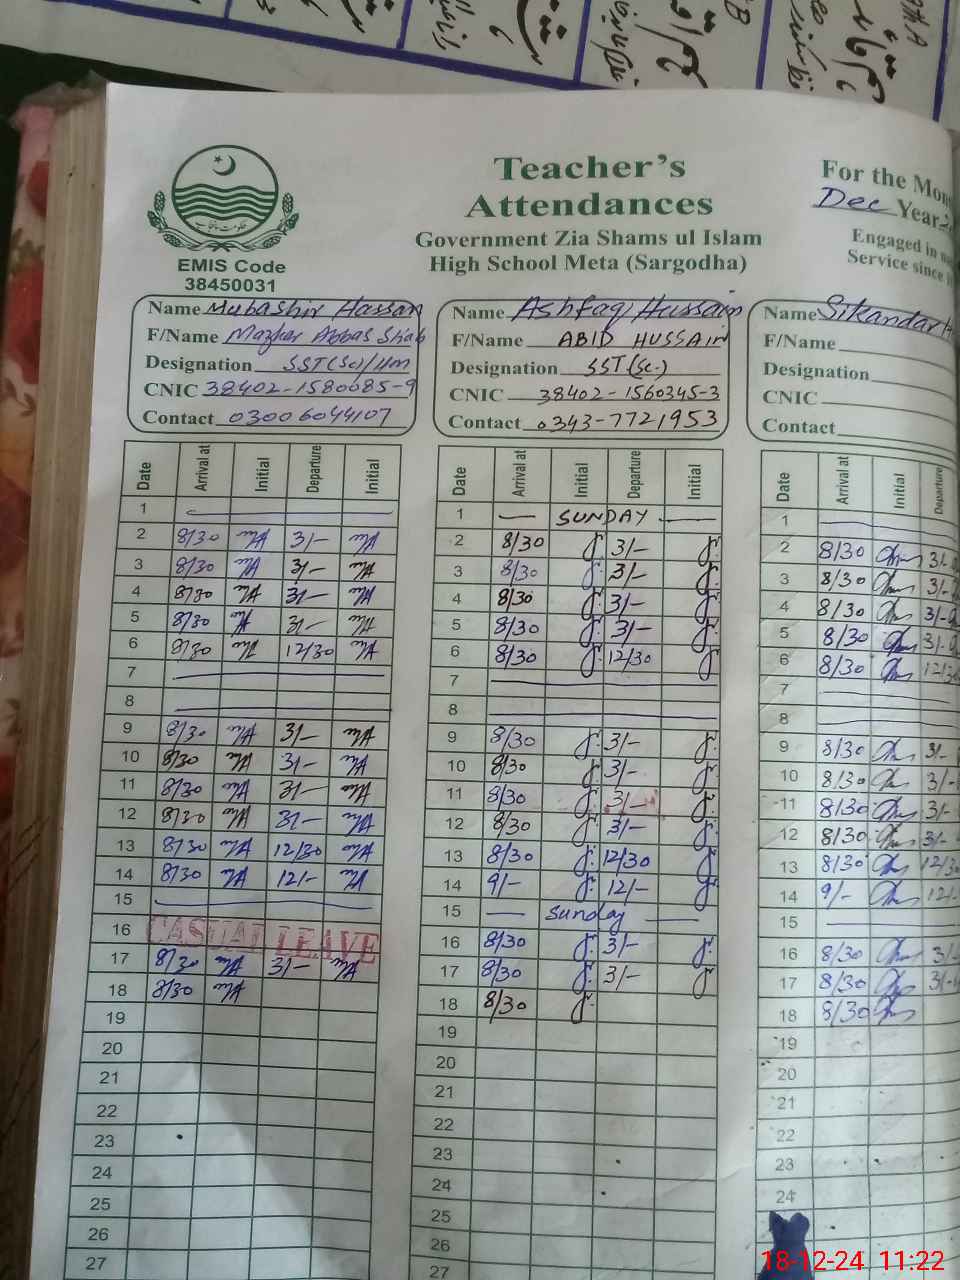 Teacher's
Attendances
Government Zia Shams ul Islam
High School Meta (Sargodha)
EMIS Code
38450031
For the Mon
Dec Year
Engaged in
Service since
Name Mubashir Hassan
F/Name Mazhar Abbas Shah
Designation SST(Sc)/Hm
CNIC 38402-1580085-9
Contact 03006044107
Date Arrival at Initial Departure Initial
1
2 8/30 3/-
3 8/30 3/-
4 8/30 3/-
5 8/30 3/-
6 8/30 12/30
7
8
9 8/30 3/-
10 8/30 3/-
11 8/30 3/-
12 8/30 3/-
13 8/30 12/30
14 8/30 12/-
15
16 CASUAL LEAVE
17 8/30 3/-
18 8/30
19
20
21
22
23
24
25
26
27
Name Ashfaq Hussain
F/Name ABID HUSSAIN
Designation SST(Sc.)
CNIC 38402-1560345-3
Contact 0343-7721953
Date Arrival at Initial Departure Initial
1 — SUNDAY —
2 8/30 3/-
3 8/30 3/-
4 8/30 3/-
5 8/30 3/-
6 8/30 12/30
7
8
9 8/30 3/-
10 8/30 3/-
11 8/30 3/-
12 8/30 3/-
13 8/30 12/30
14 9/- 12/-
15 — Sunday —
16 8/30 3/-
17 8/30 3/-
18 8/30
19
20
21
22
23
24
25
26
27
Name Sikandar
F/Name
Designation
CNIC
Contact
Date Arrival at Initial Departure
1
2 8/30 3/-
3 8/30 3/-
4 8/30 3/-
5 8/30 3/-
6 8/30 12/30
7
8
9 8/30 3/-
10 8/30 3/-
11 8/30 3/-
12 8/30 3/-
13 8/30 12/30
14 9/- 12/-
15
16 8/30 3/-
17 8/30 3/-
18 8/30
19
20
21
22
23
24
18-12-24 11:22